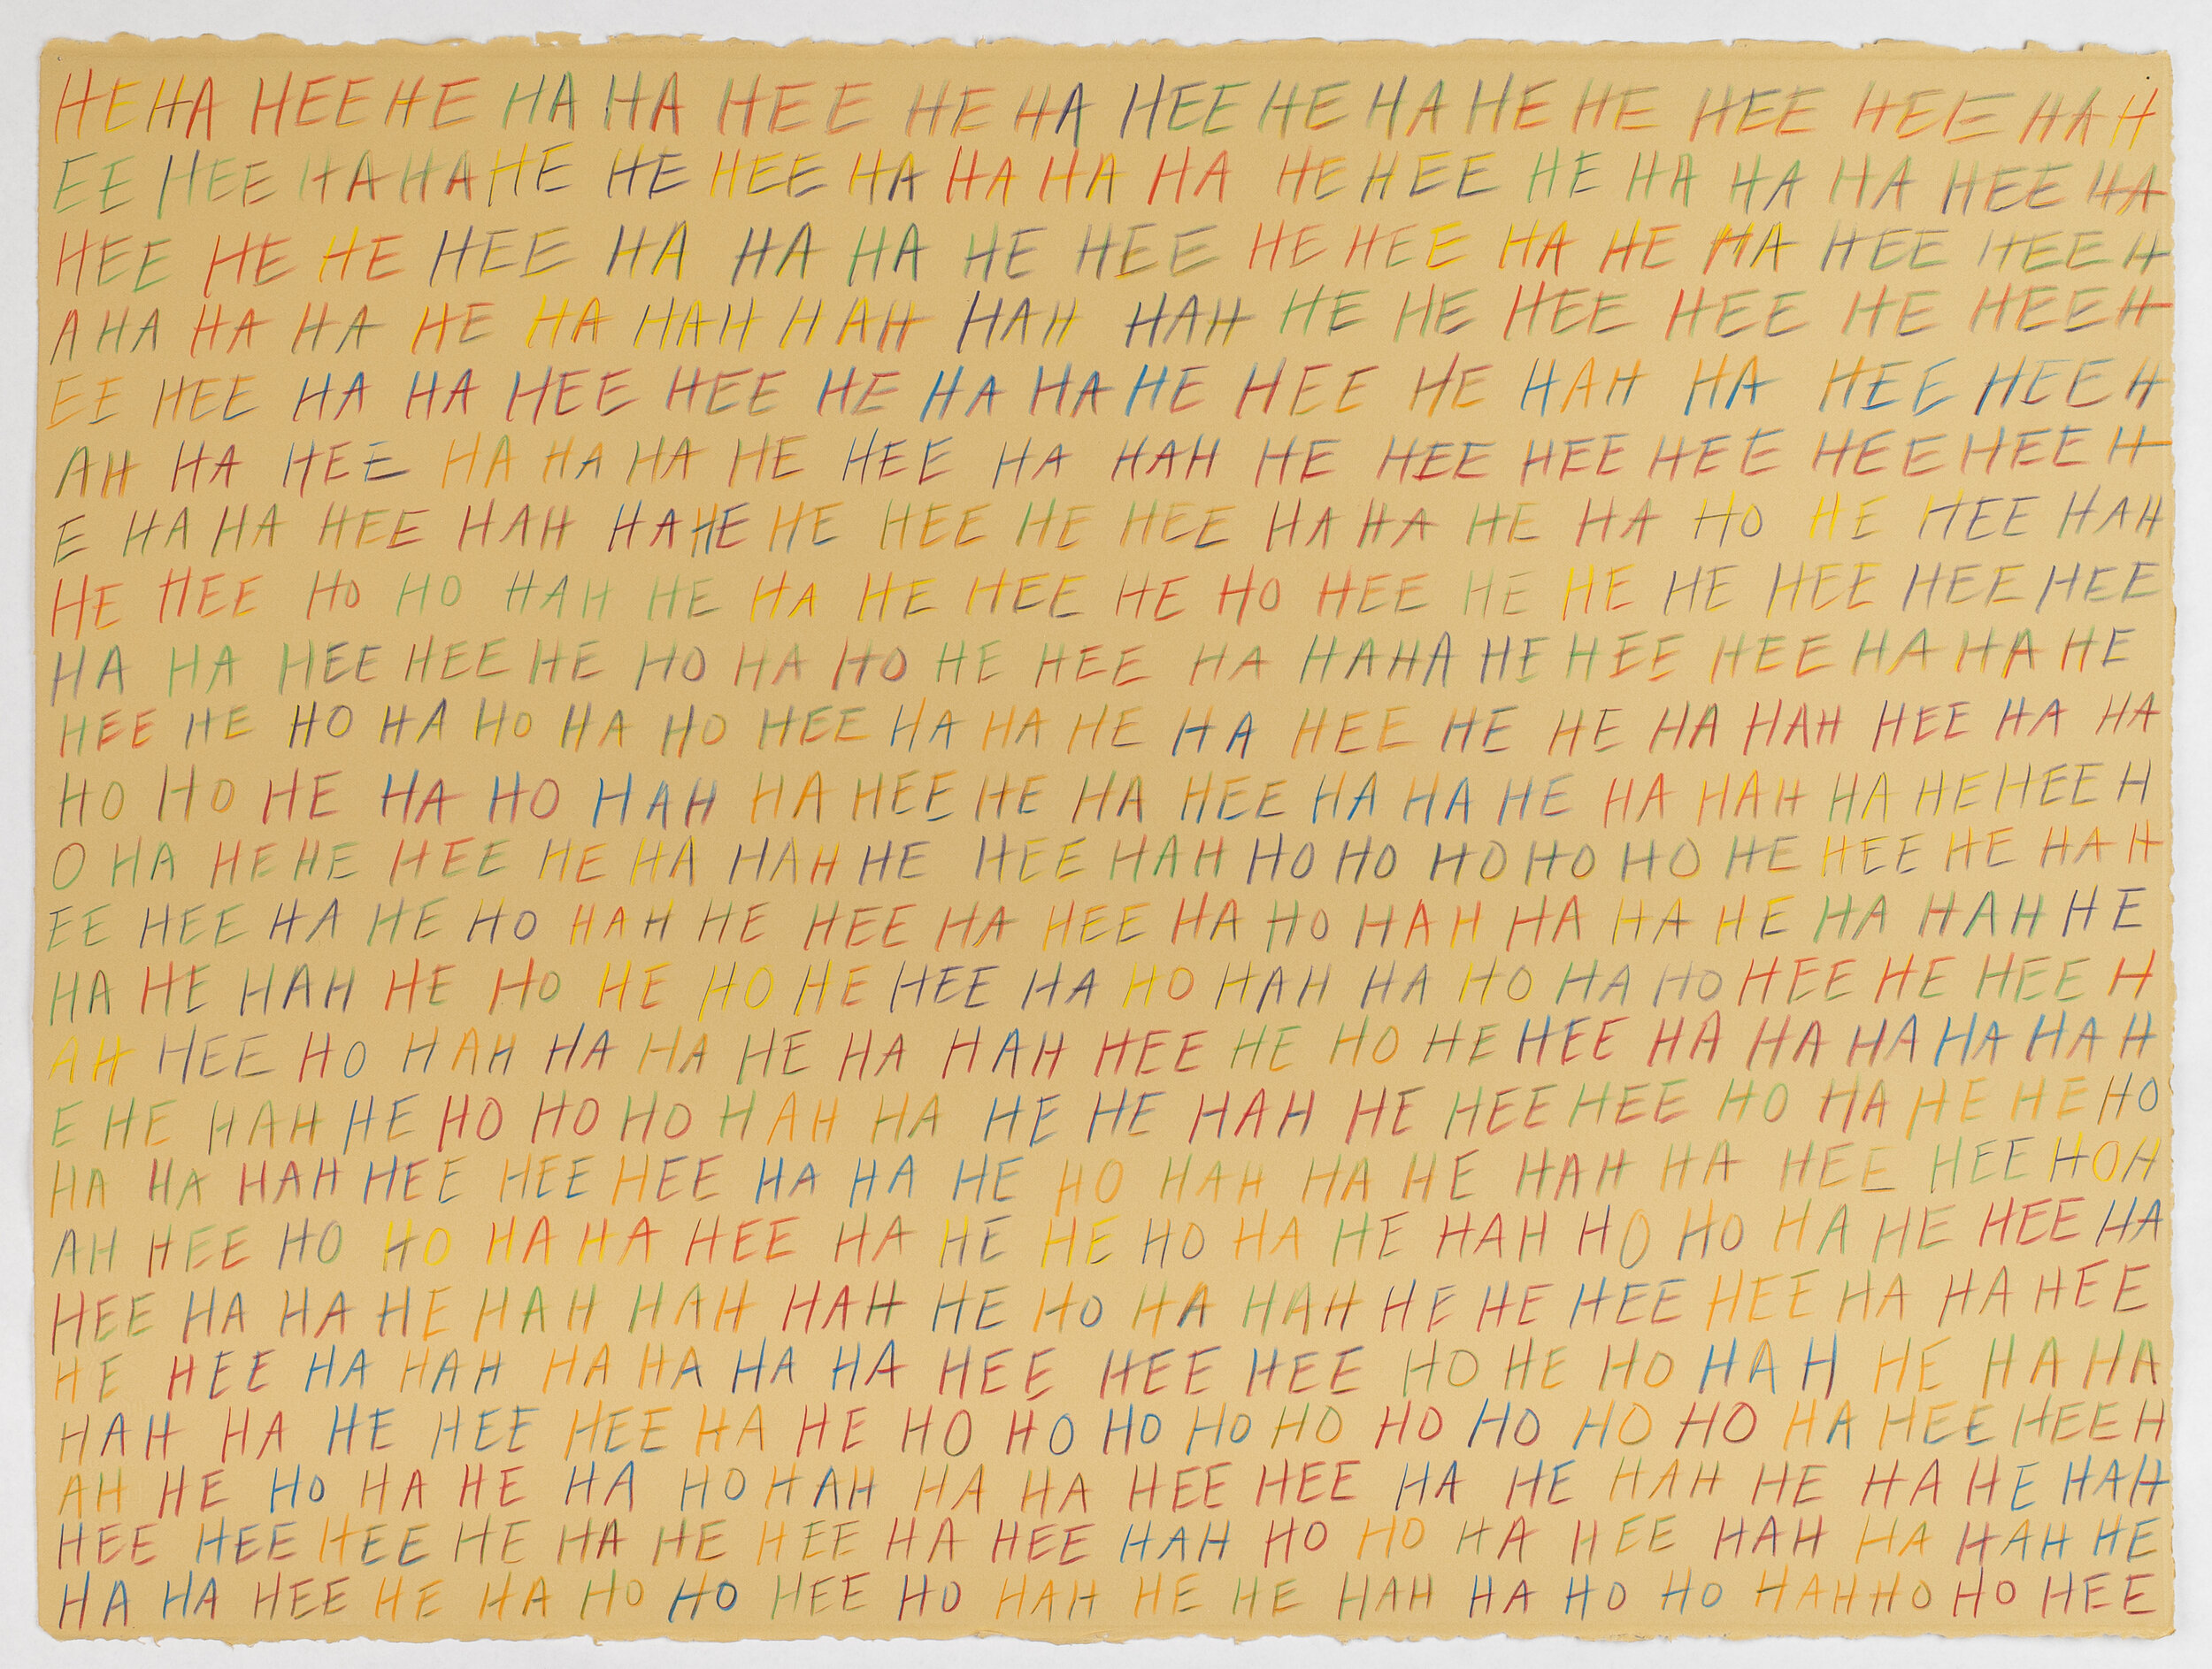 HE HA HEE HE HA HA HEE HE HA HEE HE HA HE HE HEE HEE HA H
EE HEE HA HA HE HE HEE HA HA HA HA HE HEE HE HA HA HA HEE HA
HEE HE HE HEE HA HA HA HE HEE HE HEE HA HE HA HEE HEE H
A HA HA HA HE HA HAH HAH HAH HAH HE HE HEE HEE HE HEE H
EE HEE HA HA HEE HEE HE HA HA HE HEE HE HAH HA HEE HEE H
AH HA HEE HA HA HA HE HEE HA HAH HE HEE HEE HEE HEE HEE H
E HA HA HEE HAH HA HE HE HEE HE HEE HA HA HE HA HO HE HEE HAH
HE HEE HO HO HAH HE HA HE HEE HE HO HEE HE HE HE HEE HEE HEE
HA HA HEE HEE HE HO HA HO HE HEE HA HAHA HE HEE HEE HA HA HE
HEE HE HO HA HO HA HO HEE HA HA HE HA HEE HE HE HA HAH HEE HA HA
HO HO HE HA HO HAH HA HEE HE HA HEE HA HA HE HA HAH HA HE HEE H
O HA HE HE HEE HE HA HAH HE HEE HAH HO HO HO HO HO HE HEE HE HA H
EE HEE HA HE HO HAH HE HEE HA HEE HA HO HAH HA HA HE HA HAH HE
HA HE HAH HE HO HE HO HE HEE HA HO HAH HA HO HA HO HEE HE HEE H
AH HEE HO HAH HA HA HE HA HAH HEE HE HO HE HEE HA HA HA HA HA H
E HE HAH HE HO HO HO HAH HA HE HE HAH HE HEE HEE HO HA HE HE HO
HA HA HAH HEE HEE HEE HA HA HE HO HAH HA HE HAH HA HEE HEE HO H
AH HEE HO HO HA HA HEE HA HE HE HO HA HE HAH HO HO HA HE HEE HA
HEE HA HA HE HAH HAH HAH HE HO HA HAH HE HE HEE HEE HA HA HEE
HE HEE HA HAH HA HA HA HA HEE HEE HEE HO HE HO HAH HE HA HA
HAH HA HE HEE HEE HA HE HO HO HO HO HO HO HO HO HO HA HEE HEE H
AH HE HO HA HE HA HO HAH HA HA HEE HEE HA HE HAH HE HA HE HAH
HEE HEE HEE HE HA HE HEE HA HEE HAH HO HO HA HEE HAH HA HAH HE
HA HA HEE HE HA HO HO HEE HO HAH HE HE HAH HA HO HO HAH HO HO HEE